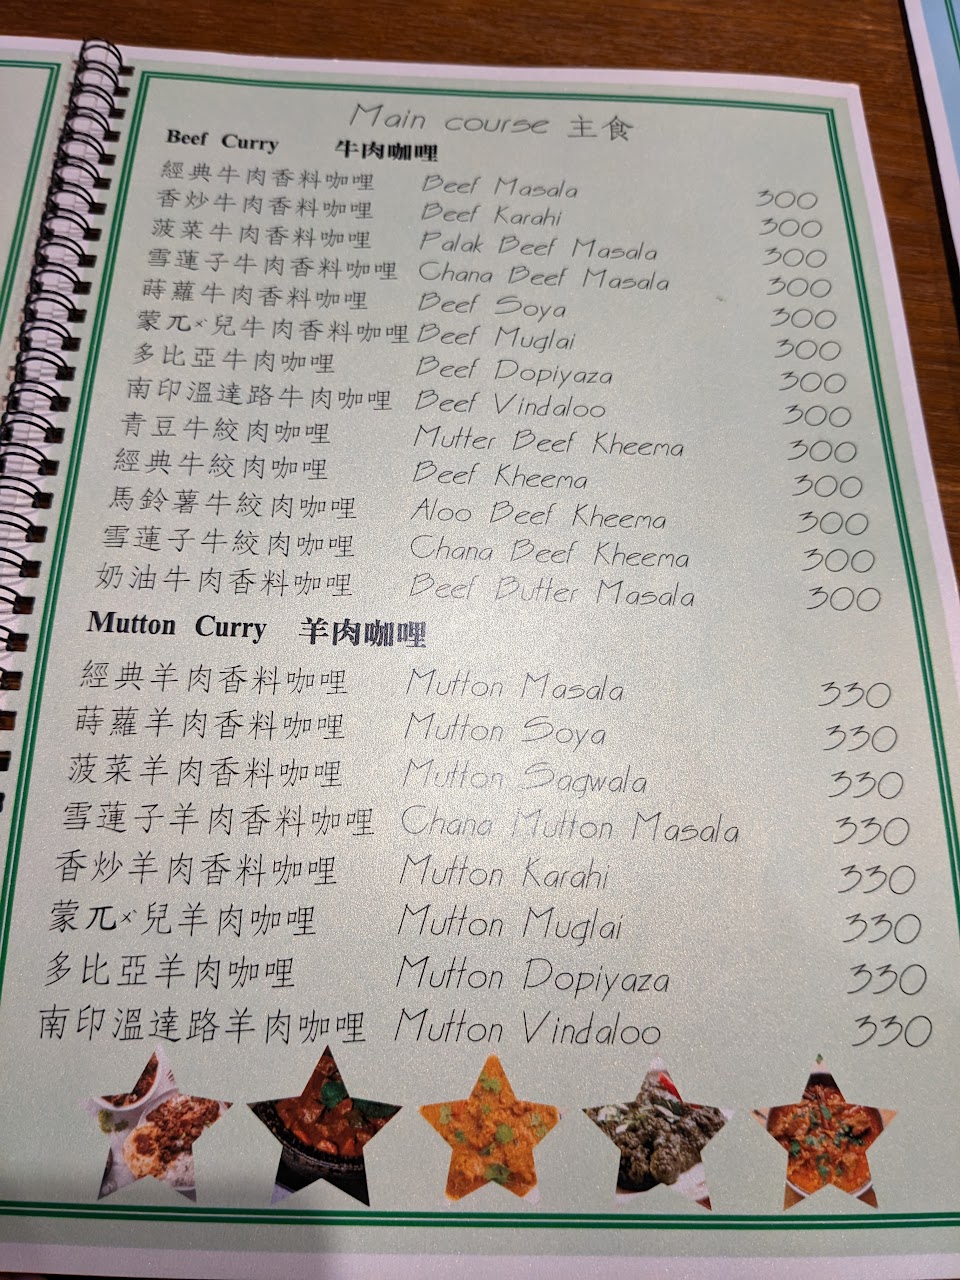 Main course 主食
Beef Curry 牛肉咖哩
經典牛肉香料咖哩 Beef Masala 300
香炒牛肉香料咖哩 Beef Karahi 300
菠菜牛肉香料咖哩 Palak Beef Masala 300
雪蓮子牛肉香料咖哩 Chana Beef Masala 300
蒔蘿牛肉香料咖哩 Beef Soya 300
蒙兀ㄨˋ兒牛肉香料咖哩 Beef Muglai 300
多比亞牛肉咖哩 Beef Dopiyaza 300
南印溫達路牛肉咖哩 Beef Vindaloo 300
青豆牛絞肉咖哩 Mutter Beef Kheema 300
經典牛絞肉咖哩 Beef Kheema 300
馬鈴薯牛絞肉咖哩 Aloo Beef Kheema 300
雪蓮子牛絞肉咖哩 Chana Beef Kheema 300
奶油牛肉香料咖哩 Beef Butter Masala 300
Mutton Curry 羊肉咖哩
經典羊肉香料咖哩 Mutton Masala 330
蒔蘿羊肉香料咖哩 Mutton Soya 330
菠菜羊肉香料咖哩 Mutton Sagwala 330
雪蓮子羊肉香料咖哩 Chana Mutton Masala 330
香炒羊肉香料咖哩 Mutton Karahi 330
蒙兀ㄨˋ兒羊肉咖哩 Mutton Muglai 330
多比亞羊肉咖哩 Mutton Dopiyaza 330
南印溫達路羊肉咖哩 Mutton Vindaloo 330